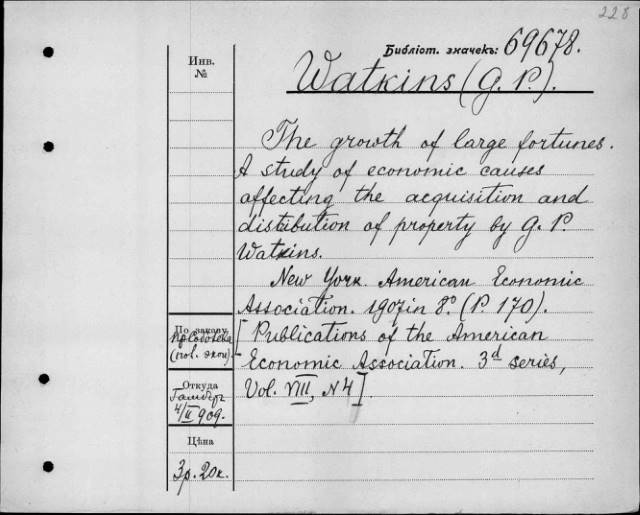 228
Библіот. значекъ: 69678.
Инв.
№
Watkins (G. P.).
The growth of large fortunes.
A study of economic causes
affecting the acquisition and
distribution of property by G. P.
Watkins.
New York. American Economic
Association. 1907 in 8º (P. 170).
По заказу
(пов. экон.)
[Publications of the American
Economic Association. 3d series,
Vol. VIII, N 4].
Откуда
4/II 909.
Цѣна
3р. 20к.